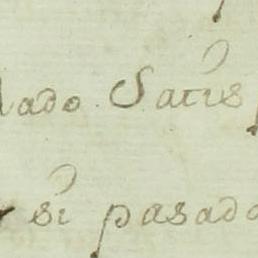 lado Satis
si pasado